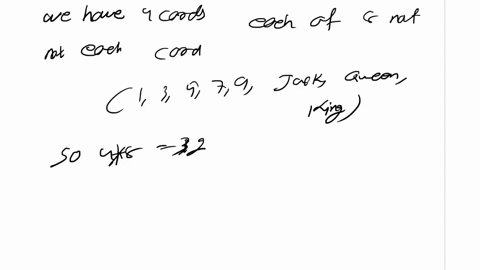 we have 4 cards each of 8 not
not each card
(1, 3, 5, 7, 9, Jack, Queen,
King)
so 4*8 = 32